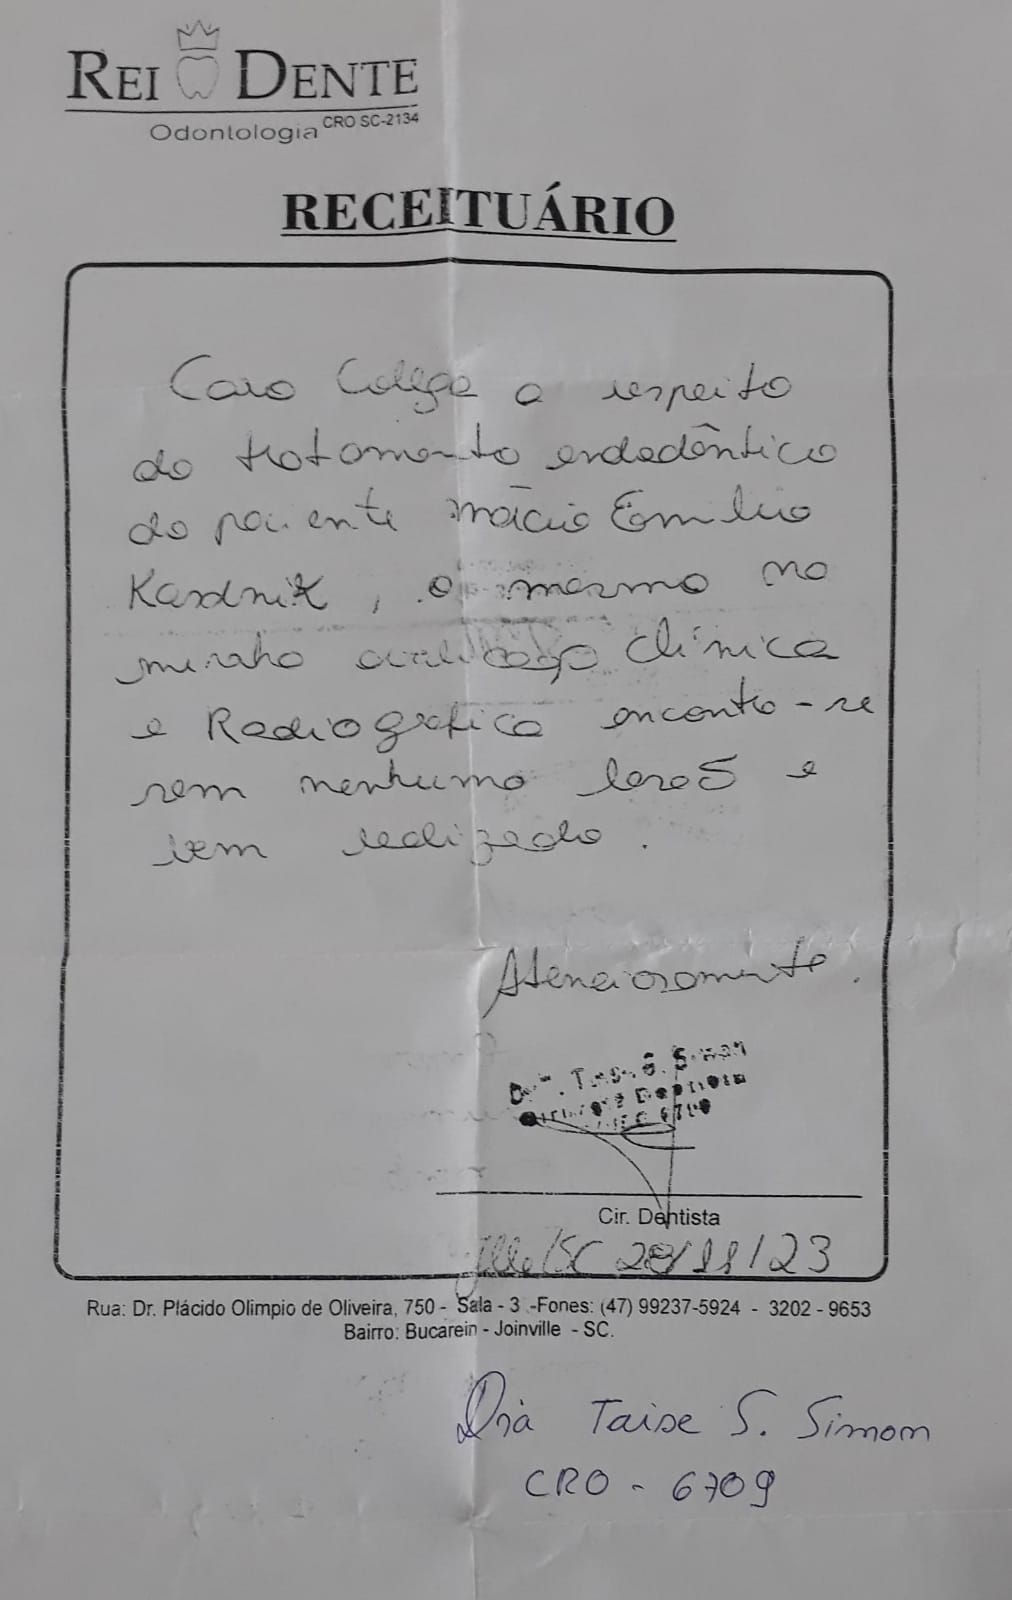 REI DENTE
Odontologia CRO SC-2134
RECEITUÁRIO
Caro Colega a respeito
do tratamento endodôntico
do paciente Márcio Emilio
Kasdnik, o mesmo na
minha avaliação clínica
e Radiografica encontra-se
sem nenhuma lesão e
bem realizado.
Atenciosamente.
Dra. Taise S. Simon
Cirurgiã Dentista
CRO 6709
Cir. Dentista
Jlle/SC 28/11/23
Rua: Dr. Plácido Olimpio de Oliveira, 750 - Sala - 3 -Fones: (47) 99237-5924 - 3202 - 9653
Bairro: Bucarein - Joinville - SC.
Dra Taise S. Simon
CRO - 6709